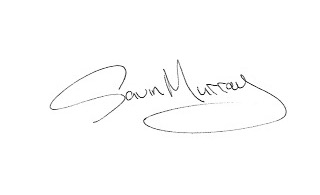 Gavin Murray